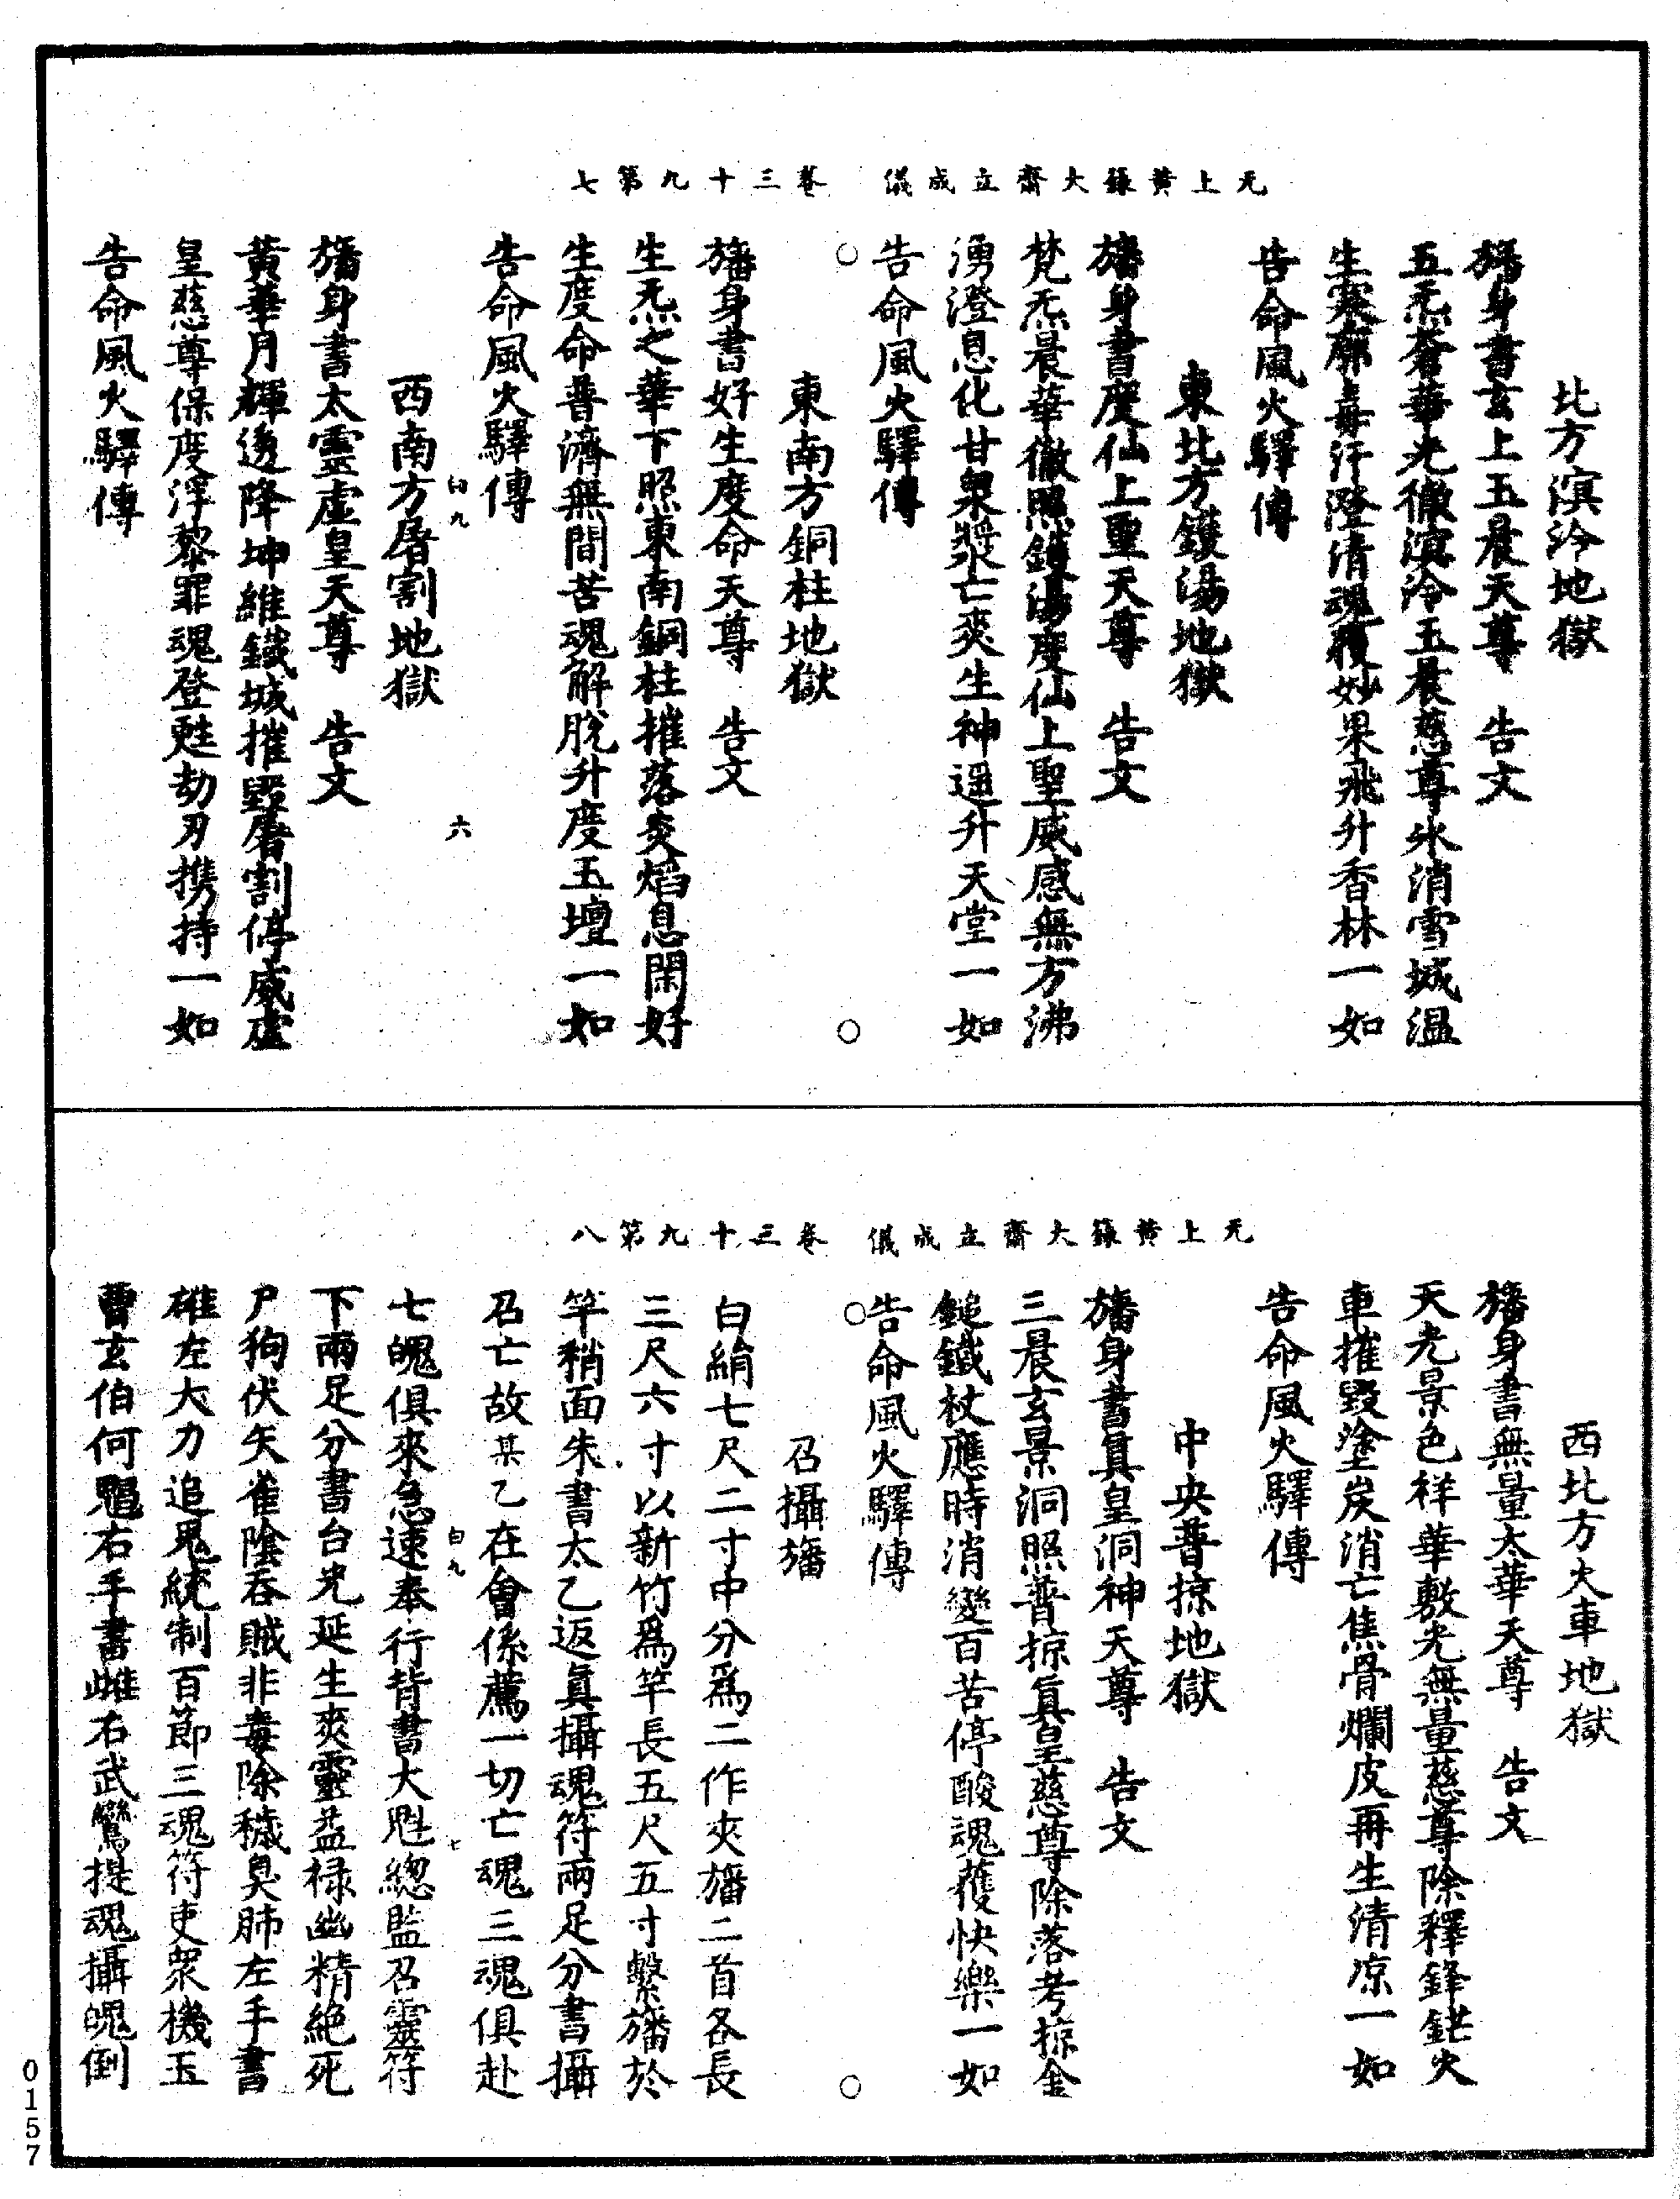 无上黃籙大齋立成儀　卷三十九第七
北方溟泠地獄
旛身書玄上玉晨天尊　告文
五炁蒼華光徹溟泠玉晨慈尊氷消雪城溫
生寒廓毒汗澄清魂獲妙果飛升香林一如
告命風火驛傳
東北方鑊湯地獄
旛身書度仙上聖天尊　告文
梵炁晨華徹照鑊湯度仙上聖威感無方沸
湧澄息化甘泉漿亡爽生神遥升天堂一如
告命風火驛傳
東南方銅柱地獄
旛身書好生度命天尊　告文
生炁之華下照東南銅柱摧落炎焰息閑好
生度命普濟無間苦魂解脫升度玉壇一如
告命風火驛傳
白九　六
西南方屠割地獄
旛身書太靈虛皇天尊　告文
黃華月輝逡降坤維鐵城摧毀屠割停威虛
皇慈尊保度浮黎罪魂登甦劫刃携持一如
告命風火驛傳
无上黃籙大齋立成儀　卷三十九第八
西北方火車地獄
旛身書無量太華天尊　告文
天光景色祥華敷光無量慈尊除釋鋒鋩火
車摧毀塗炭消亡焦骨爛皮再生清凉一如
告命風火驛傳
中央普掠地獄
旛身書真皇洞神天尊　告文
三晨玄景洞照普掠真皇慈尊除落考掠金
鎚鐵杖應時消變百苦停酸魂獲快樂一如
告命風火驛傳
召攝旛
白絹七尺二寸中分爲二作夾旛二首各長
三尺六寸以新竹爲竿長五尺五寸繫旛於
竿稍面朱書太乙返真攝魂符兩足分書攝
召亡故某乙在會係薦一切亡魂三魂俱赴
七魄俱來急速奉行背書大魁總監召靈符
白九　七
下兩足分書台光延生爽靈益祿幽精絶死
尸狗伏矢雀陰吞賊非毒除穢臭肺左手書
雄左大力追鬼統制百節三魂符吏衆機玉
曹玄伯何魁右手書雌右武鸞提魂攝魄倒
0157